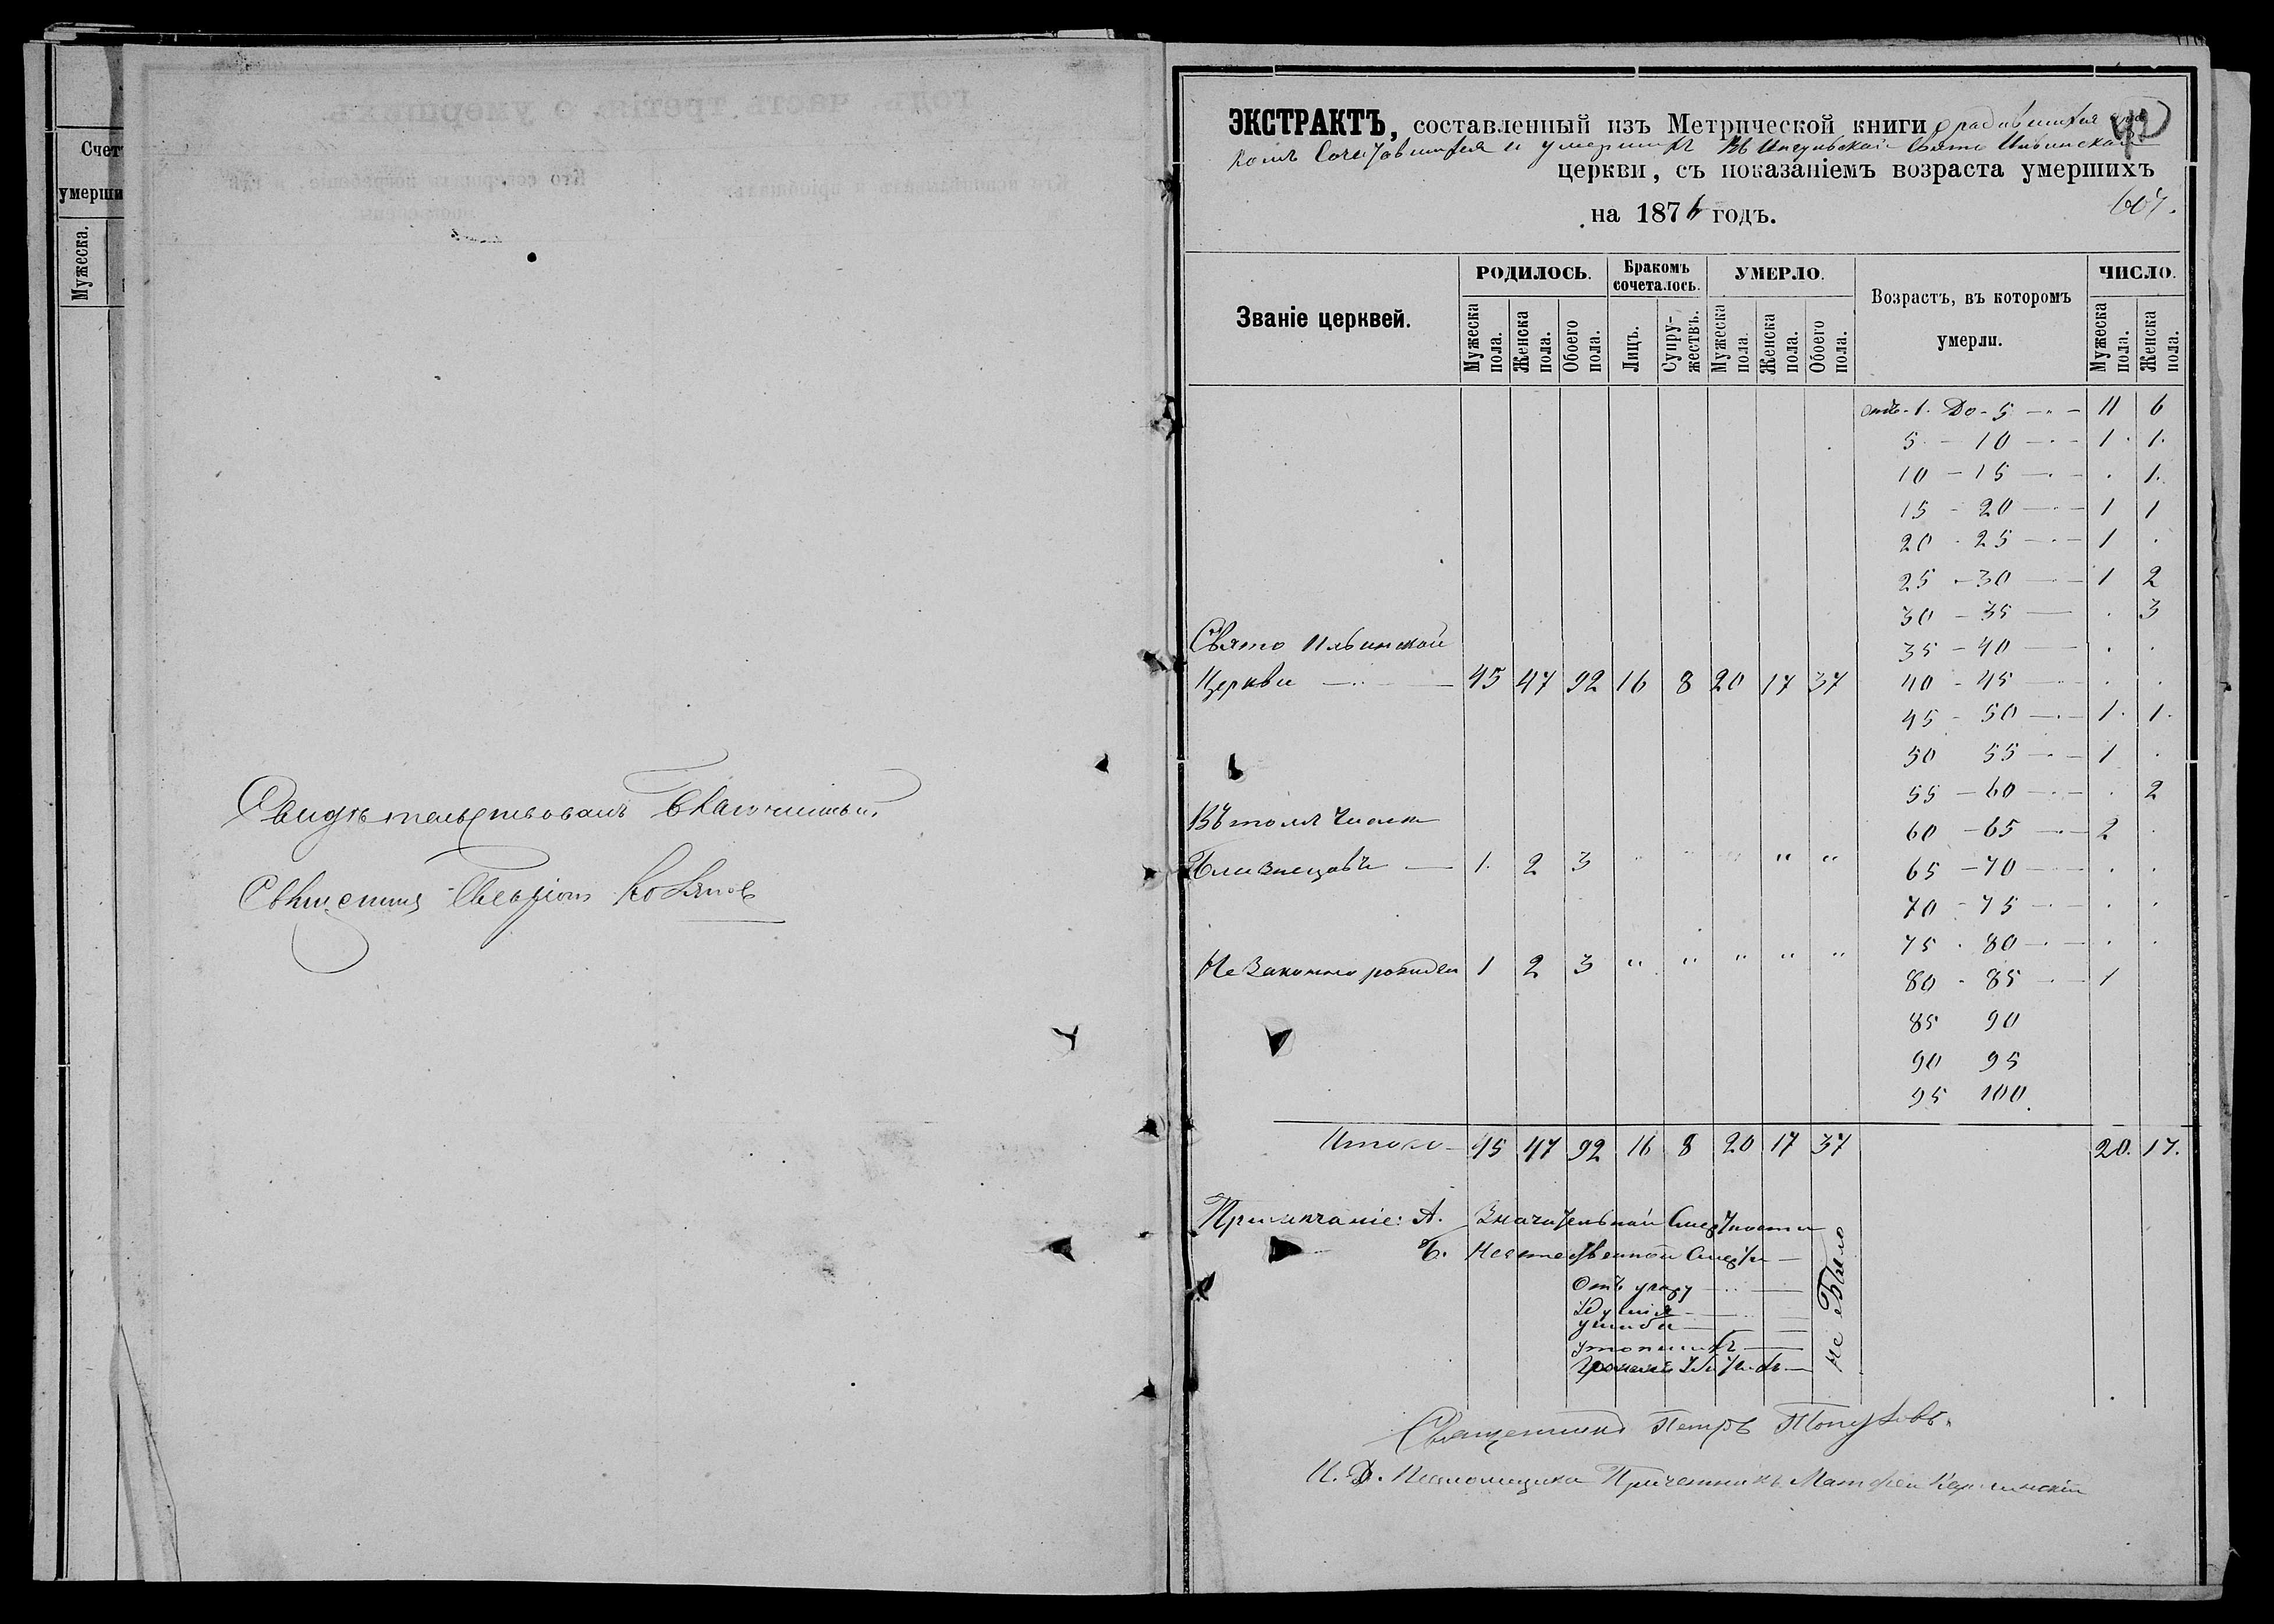 Счет
умерши
Мужеска.
Свидѣтельствовалъ Благочинный
Священникъ
ЭКСТРАКТЪ, составленный изъ Метрической книги о родившихся бра
комъ Сочетавшихся и умершихъ Свято Ильинской
церкви, съ показаніемъ возраста умершихъ
на 1876 годъ.
607.
Званіе церквей.
РОДИЛОСЬ.
Мужеска пола.
Женска пола.
Обоего пола.
Бракомъ сочеталось.
Лицъ.
Супружествъ.
УМЕРЛО.
Мужеска пола.
Женска пола.
Обоего пола.
Возрастъ, въ которомъ
умерли.
ЧИСЛО.
Мужеска пола.
Женска пола.
отъ - 1. До - 5 11 6
5 - 10 1. 1.
10 - 15 . 1.
15 - 20 1 1
20 - 25 1 .
25 - 30 1 2
30 - 35 . 3
Свято Ильинской
35 - 40 . .
Церкви 45 47 92 16 8 20 17 37
40 - 45 . .
45 - 50 1. 1.
50 55 1 .
55 - 60 . 2
Въ томъ Числѣ
60 - 65 2 .
Близнецовъ 1. 2 3 " " " " "
65 - 70 . .
70 - 75 . .
75 - 80 . .
Незаконно рожден 1 2 3 " " " " "
80 - 85 1
85 90
90 95
95 100.
Итого 45 47 92 16 8 20 17 37 20. 17.
Примѣчаніе: А. Значительной Смертности
Б. Неестественной Смерти
Отъ угару
ушиба
утопшихъ
не Было
Священникъ Петръ
И. Д. Псаломщика Причетникъ Матфей